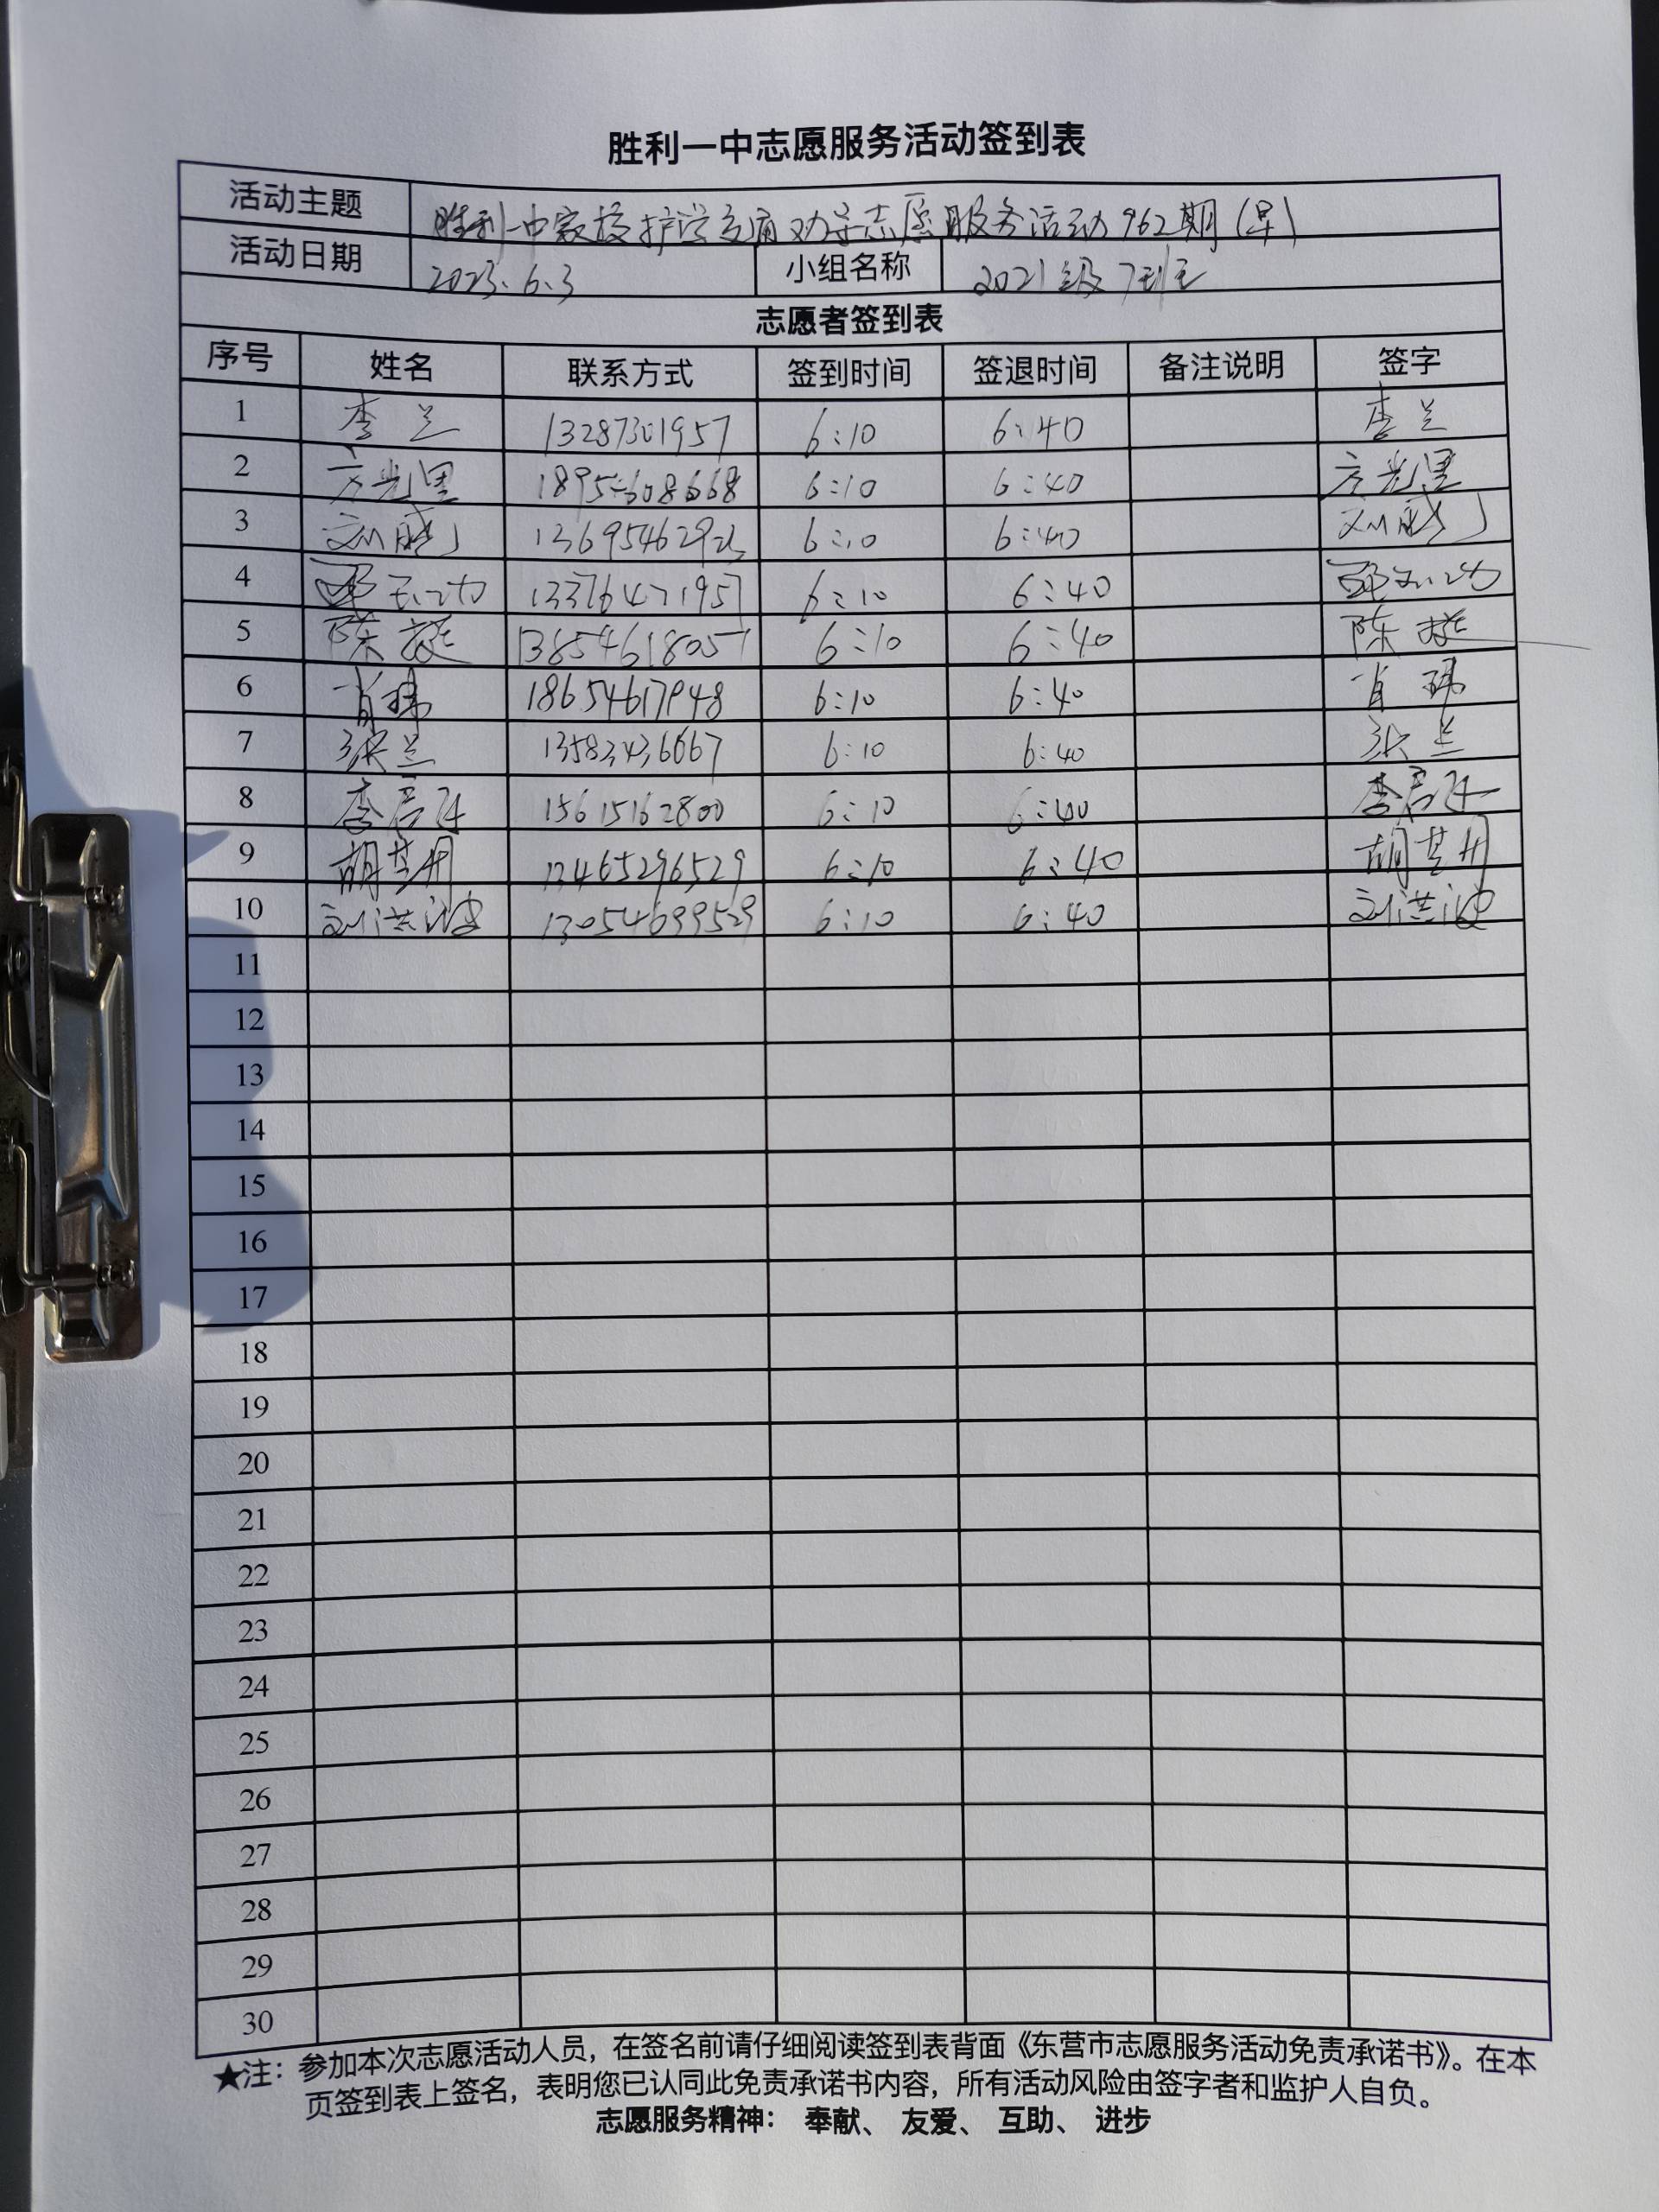 胜利一中志愿服务活动签到表
活动主题 胜利一中家校护学交通劝导志愿服务活动962期(早)
活动日期 2023.6.3 小组名称 2021级7班
志愿者签到表
序号 姓名 联系方式 签到时间 签退时间 备注说明 签字
1 李兰 13287301957 6:10 6:40 李兰
2 18954608668 6:10 6:40
3 6:10 6:40
4 13376471957 6:10 6:40
5 陈 13854618057 6:10 6:40 陈
6 肖玮 18654617948 6:10 6:40 肖玮
7 张兰 13583436667 6:10 6:40 张兰
8 15615162800 6:10 6:40
9 13465296529 6:10 6:40
10 刘洪波 13054699529 6:10 6:40 刘洪波
11
12
13
14
15
16
17
18
19
20
21
22
23
24
25
26
27
28
29
30
★注：参加本次志愿活动人员，在签名前请仔细阅读签到表背面《东营市志愿服务活动免责承诺书》。在本
页签到表上签名，表明您已认同此免责承诺书内容，所有活动风险由签字者和监护人自负。
志愿服务精神： 奉献、 友爱、 互助、 进步